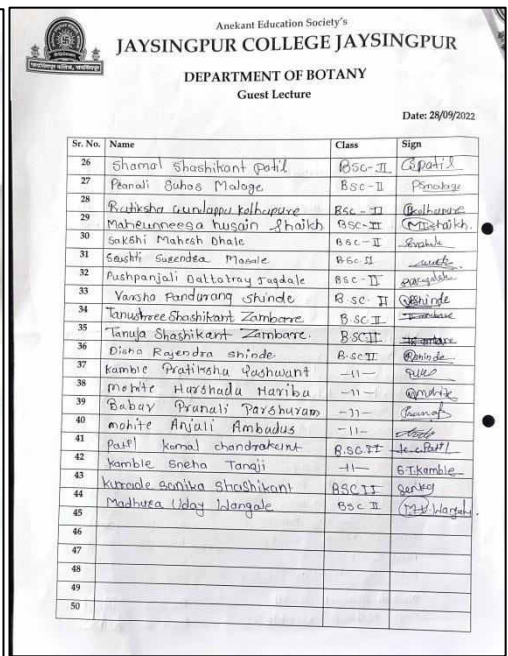 Anekant Education Society's
JAYSINGPUR COLLEGE JAYSINGPUR
DEPARTMENT OF BOTANY
Guest Lecture
Date: 28/09/2022
Sr. No. Name Class Sign
26 Shamal Shashikant Patil BSC-II Spatil
27 Pranali Suhas Malage BSC-II PSmalage
28 Rutiksha Gundappa kolhapure BSC-II Rkolhapure
29 Maheunneesa husain Shaikh BSC-II MIshaikh.
30 Sakshi Mahesh Dhale BSC-II
31 Srushti Surendra Masale B.SC.II
32 Pushpanjali Dattatray Jagdale BSC-II
33 Varsha Pandurang shinde B.SC-II Shinde
34 Tanushree Shashikant Zambare B.SC II
35 Tanuja Shashikant Zambare. B.SC II
36 Disha Rajendra shinde B.SC II Rshinde
37 kamble Pratiksha Yashwant -11-
38 mohite Harshada Hariba -11-
39 Babav Pranali Parshuram -11- Pranali
40 mohite Anjali Ambadus -11-
41 Patil komal chandrakant B.SC.II k.c.Patil
42 kamble Sneha Tanaji -11- S.T.kamble
43 kurade Sanika Shashikant BSC II
44 Madhura Uday Wangale BSC II M.U.Wangale
45
46
47
48
49
50